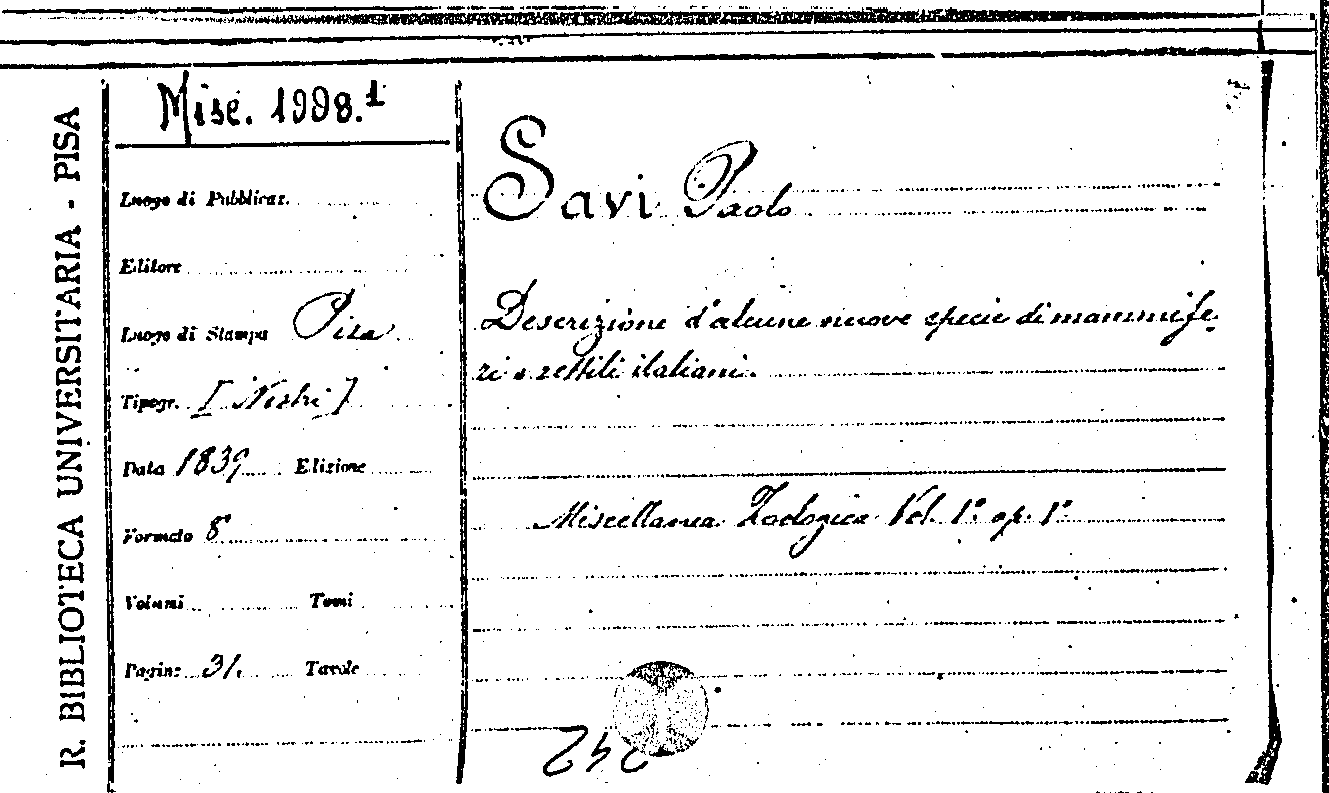 R. BIBLIOTECA UNIVERSITARIA - PISA
Misc. 1998.1
Luogo di Pubblicaz.
Editore
Luogo di Stampa Pisa
Tipogr. [Nistri]
Data 1839 Edizione
Formato 8°
Volumi Tomi
Pagine 31. Tavole
Savi Paolo
Descrizione d'alcune nuove specie di mammife-
ri e rettili italiani.
Miscellanea Zoologica Vol. 1° op. 1°